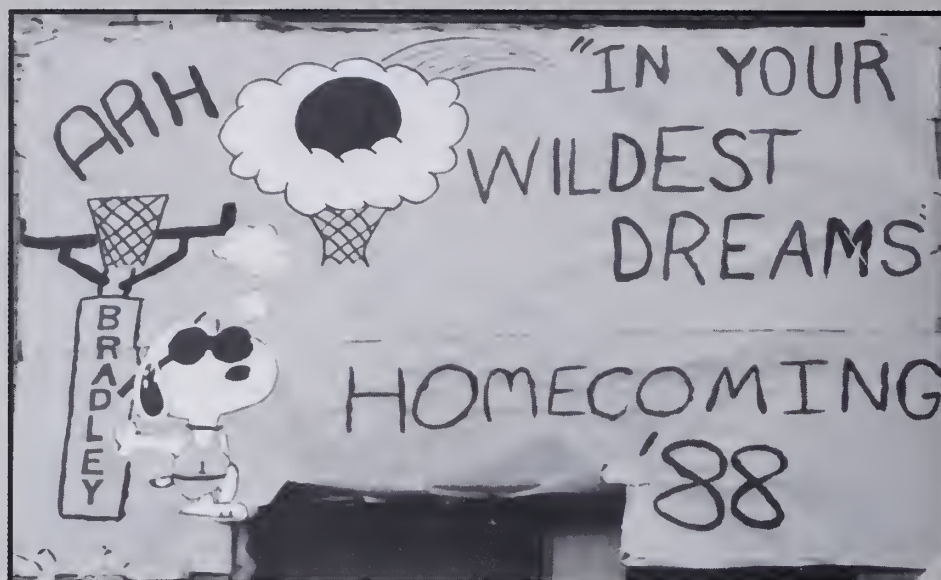 ARH
"IN YOUR
WILDEST
DREAMS"
BRADLEY
HOMECOMING
'88